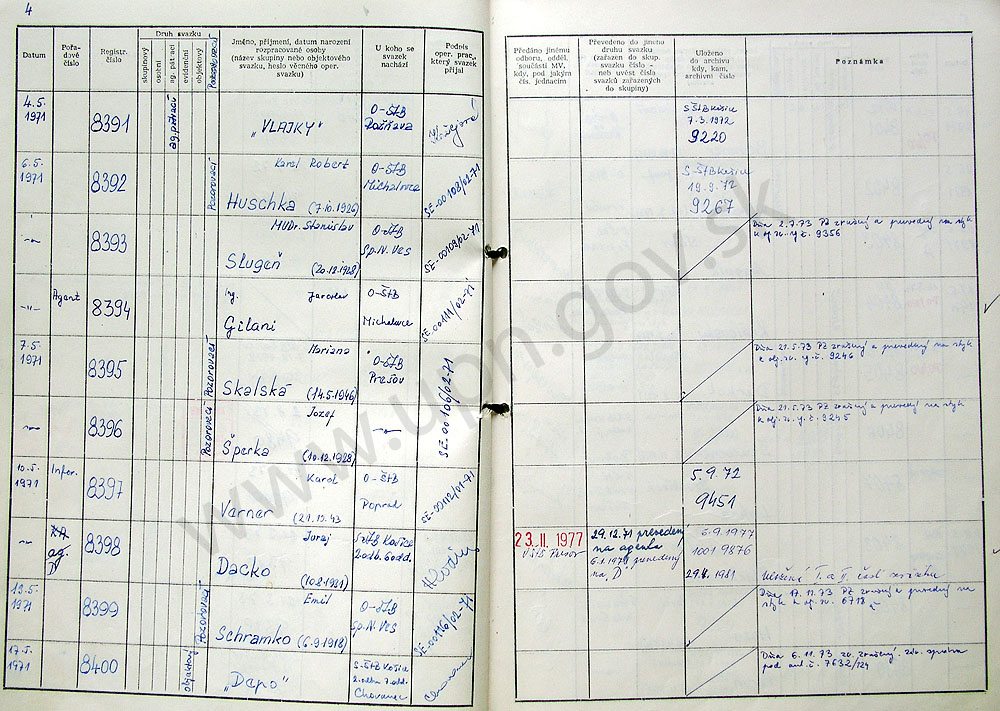 4
Datum
Pořa-
dové
číslo
Registr.
číslo
Druh svazku
skupinový
osobní
ag. pátrací
evidenční
objektový
Pozorovací
Jméno, příjmení, datum narození
rozpracované osoby
(název skupiny nebo objektového
svazku, heslo věcného oper.
svazku)
U koho se
svazek
nachází
Podpis
oper. prac.,
který svazek
přijal
Předáno jinému
odboru, odděl.
součásti MV,
kdy, pod jakým
čís. jednacím
Převedeno do jiného
druhu svazku
(zařazen do skup.
svazku číslo -
neb uvést čísla
svazků zařazených
do skupiny)
Uloženo
do archivu
kdy, kam,
archivní číslo
Poznámka
4.5.
1971
8391
ag. pátrací
"VLAJKY"
O-ŠtB
Rožňava
S ŠtB Košice
7.3.1972
9220
6.5.
1971
8392
Pozorovací
Karel Robert
Huschka (7.10.1926)
O-ŠtB
Michalovce
SE-00108/02-71
S-ŠtB Košice
19.9.72
9267
-"-
8393
MUDr. Stanislav
Slugeň (20.12.1928)
O-ŠtB
Sp.N.Ves
SE-00109/02-71
Dňa 2.7.73 PZ zrušený a prevedený na styk
9356
-"-
Agent
8394
Ing. Jaroslav
Gilani
O-ŠtB
Michalovce
SE-00111/02-71
7.5.
1971
8395
Pozorovací
Mariana
Skalská (14.5.1946)
O-ŠtB
Prešov
SE-00106/02-71
Dňa 21.5.73 PZ zrušený a prevedený na styk
9246
-"-
8396
Pozorovací
Jozef
Šperka (10.12.1928)
-"-
Dňa 21.5.73 PZ zrušený a prevedený na styk
9245
10.5.
1971
Infor.
8397
Karol
Varner (21.10.43
O-ŠtB
Poprad
SE-00112/01-71
5.9.72
9451
-"-
KA
ag.
D
8398
Juraj
Dacko (10.8.1921)
S-ŠtB Košice
2.odb. 6odd.
23. II. 1977
29.12.71 prevedený
na agenta
prevedený
na "D"
6.9.1977
1001 9876
29.4.1981
Uložená I. a II. časť zväzku
13.5.
1971
8399
Pozorovací
Emil
Schramko (6.9.1918)
O-ŠtB
Sp.N.Ves
SE-00116/02-71
Dňa 17.11.73 PZ zrušený a prevedený na
styk 6718
17.5.
1971
8400
objektový
"Dapo"
S-ŠtB Košice
2.odbor 7.odd.
Chovanec
Dňa 6.11.73 zrušený
7632/124
www.upn.gov.sk